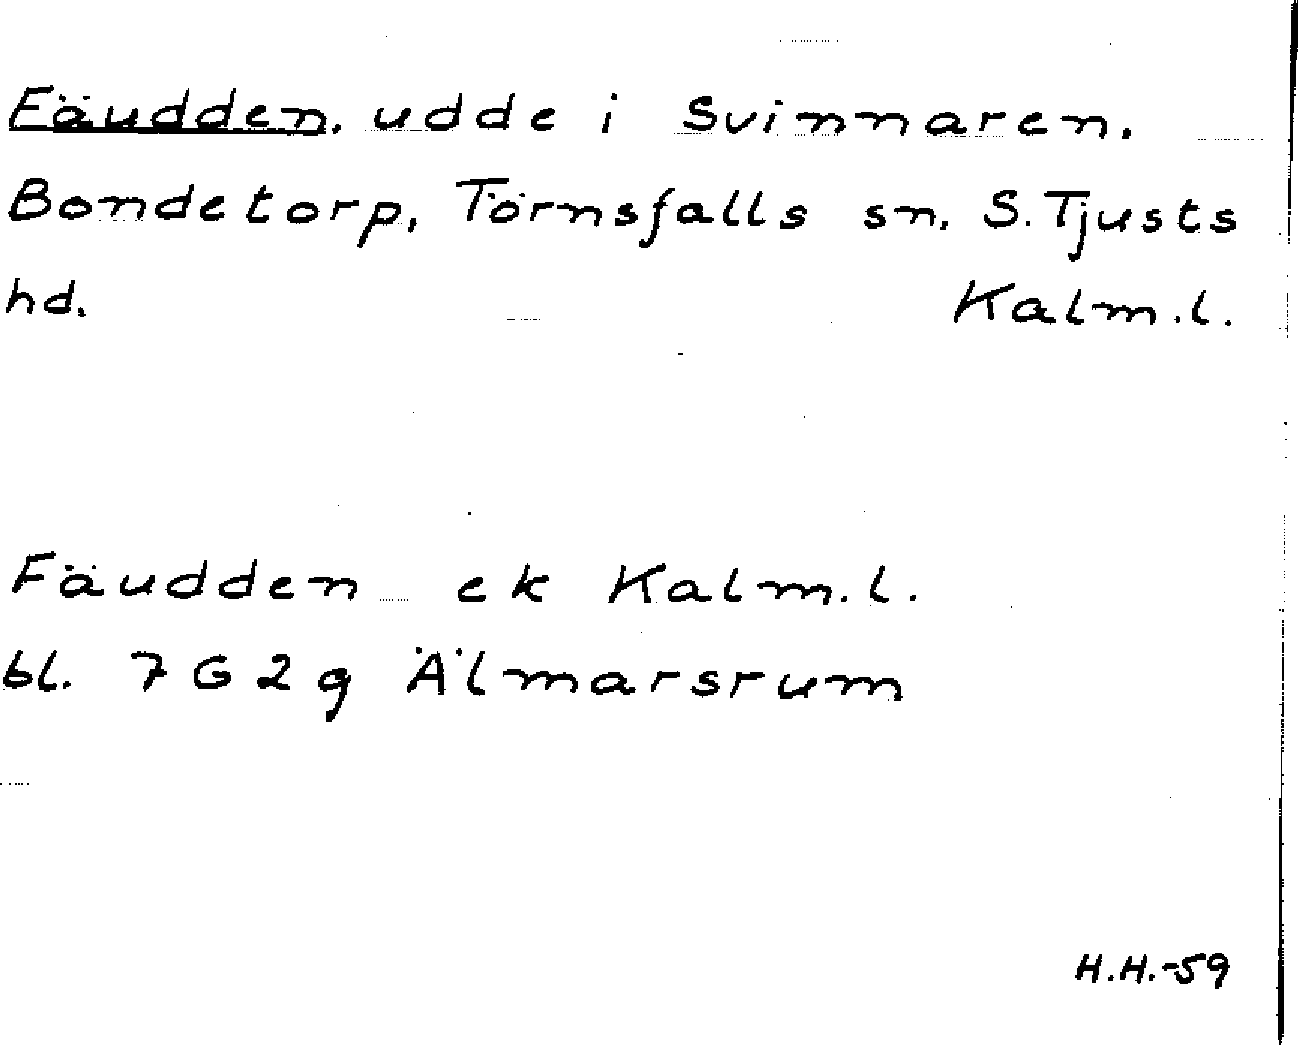 Fäudden. udde i Svinnaren.
Bondetorp, Törnsfalls sn. S. Tjusts
hd. Kalm.l.
Fäudden ek Kalm.l.
bl. 7 G 2 g Älmarsrum
H.H.-59